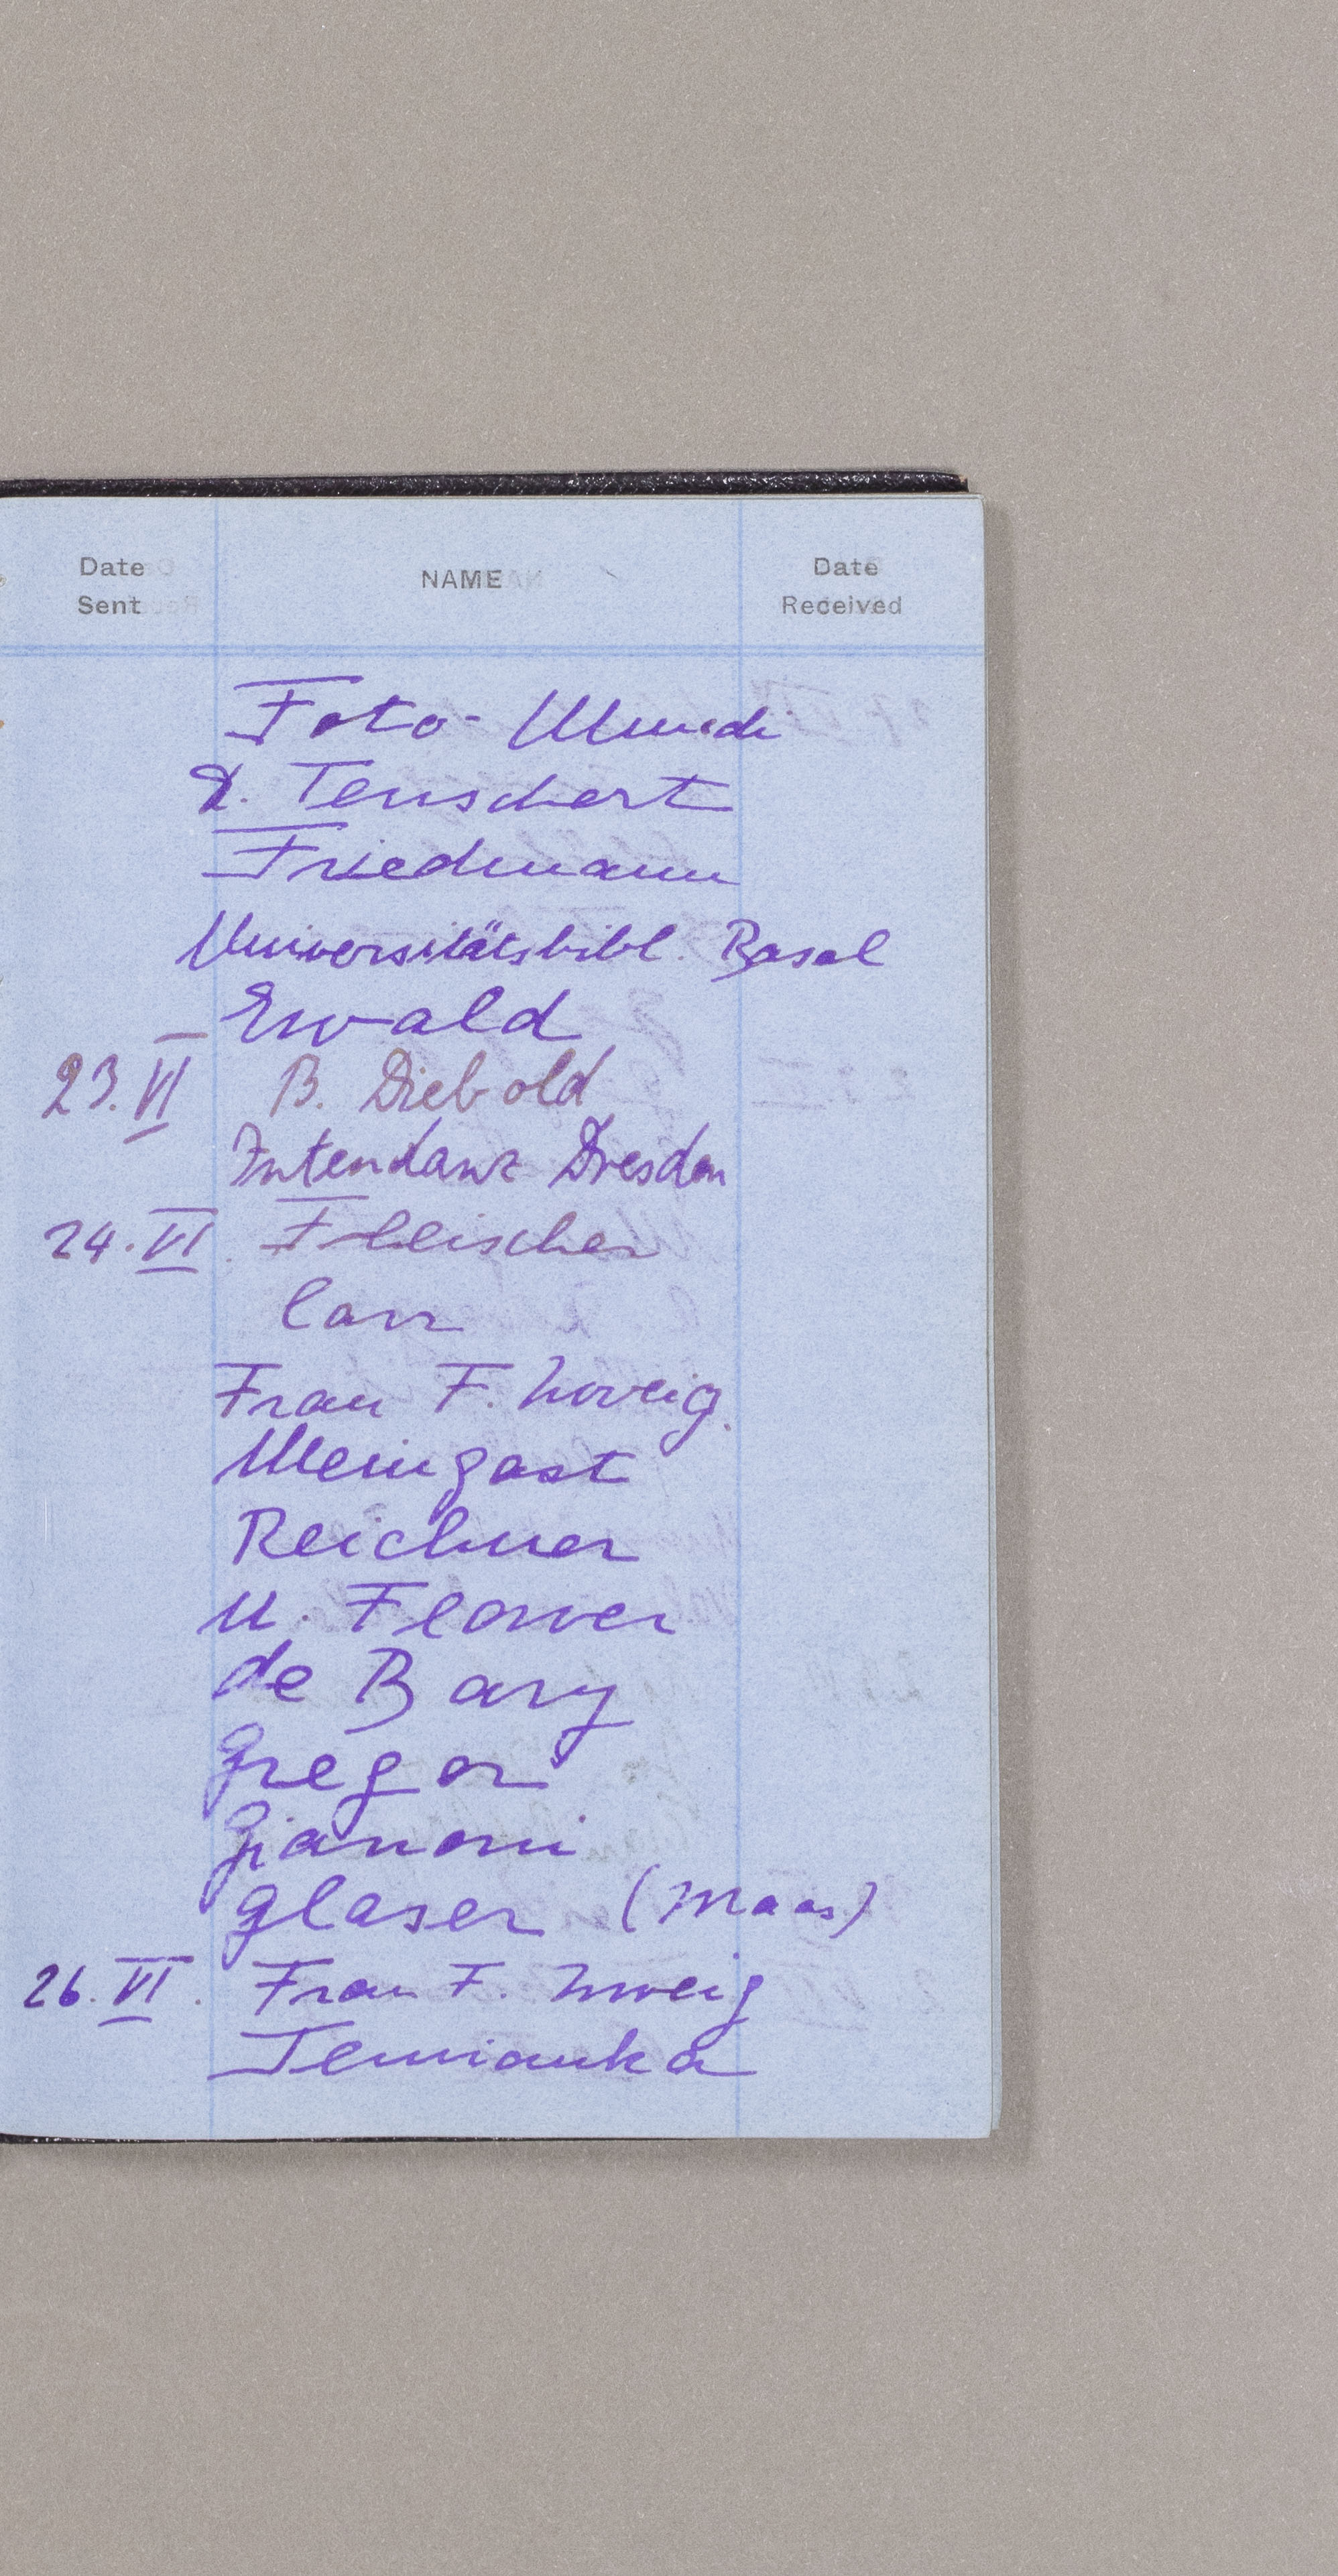 Date Sent NAME Date Received
Foto-Mundi
D. Tenschert
Friedmann
Universitätsbibl. Basel
Ewald
23. VI B. Diebold
Intendanz Dresden
24. VI. Fleischer
Carr
Frau F. Zweig.
Meingast
Reichner
N. Flower
de Bary
Gregor
Gianoni
Glaser (Maas)
26. VI. Frau F. Zweig
Temianka